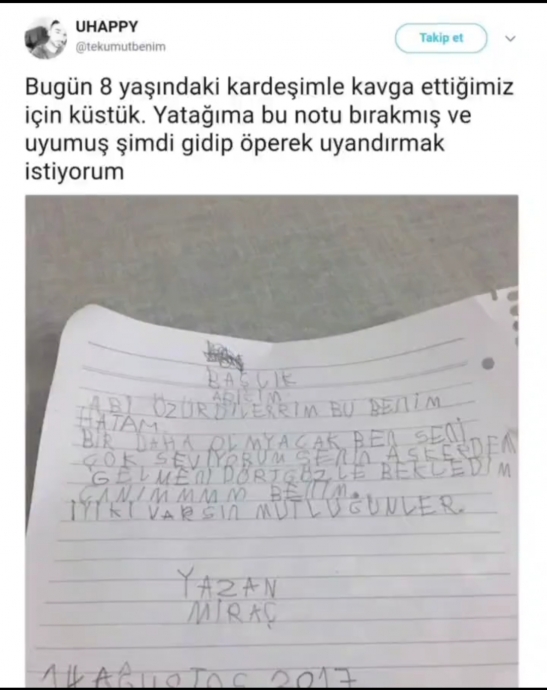 UHAPPY
@tekumutbenim
Takip et
Bugün 8 yaşındaki kardeşimle kavga ettiğimiz
için küstük. Yatağıma bu notu bırakmış ve
uyumuş şimdi gidip öperek uyandırmak
istiyorum
BAÇLIK
ABİCİM
ABİ ÖZÜRDİLERRİM BU BENİM
HATAM
BİR DAHA OLMYACAK BEN SENİ
ÇOK SEVİYORUM SENİN ASKERDEN
GELMENİ DÖRTGÖZLE BEKLEDİM
CANIMMMM BENİM.
İYİKİ VARSIN MUTLUGÜNLER.
YAZAN
MİRAÇ
14 AĞUSTOS 2017